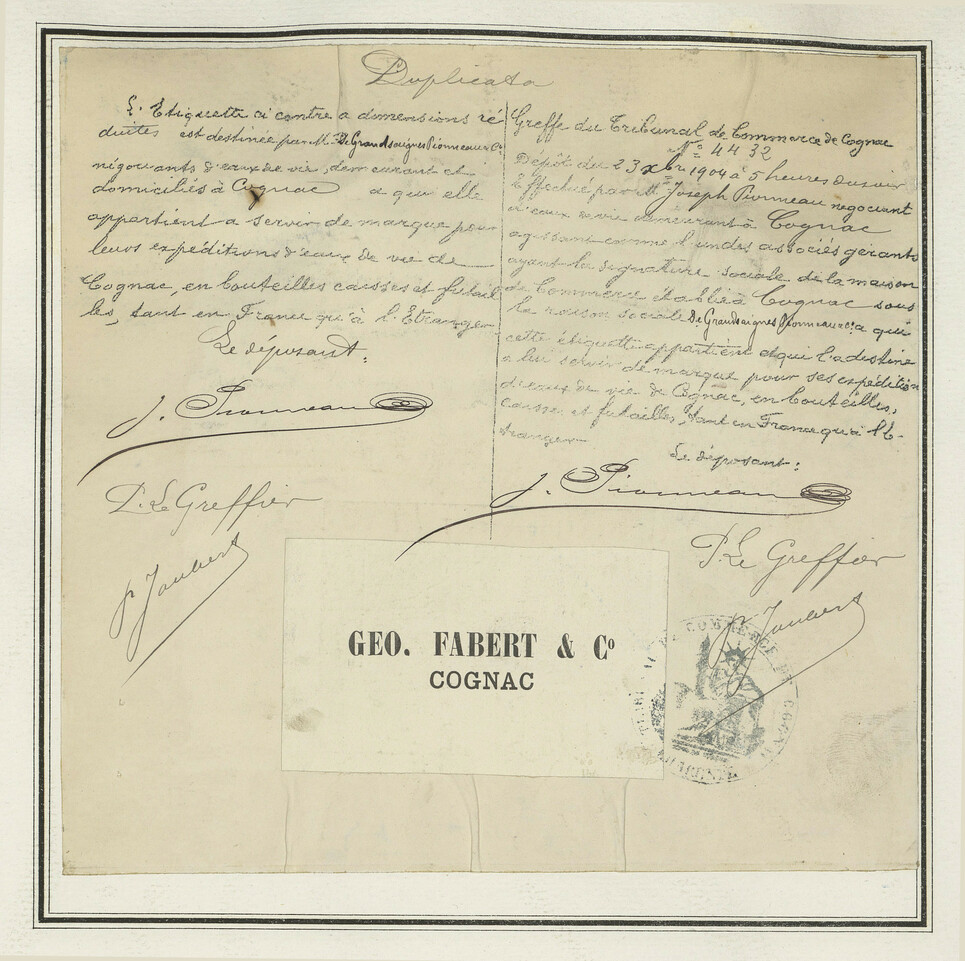 Duplicata
L'Etiquette ci contre a dimensions ré
duites est destinée par M. De Grandsaignes Pionneau & Co
négociants d'eaux de vie, demeurant et
domiciliés à Cognac a qui elle
appartient a servir de marque pour
leurs expéditions d'eaux de vie de
Cognac, en bouteilles caisses et futail
les, tant en France qu'à l'Etranger
Le déposant:
J. Pionneau
P. Le Greffier
pr Jaubert
Greffe du Tribunal de Commerce de Cognac
No 4432
Dépôt du 23 xbre 1904 à 5 heures du soir
Effectué par M. Joseph Pionneau negociant
d'eaux de vie demeurant à Cognac
agissant comme l'un des associés gérants
ayant la signature sociale de la maison
de Commerce établie à Cognac sous
la raison sociale De Grandsaignes Pionneau & Co. a qui
cette étiquette appartient et qui l'a destine
a lui servir de marque pour ses expédition
d'eaux de vie de Cognac, en bouteilles,
caisses et futailles, tant en France qu'à l'E-
tranger
Le déposant:
J. Pionneau
P. Le Greffier
pr Jaubert
GEO. FABERT & Co
COGNAC
TRIBUNAL DE COMMERCE DE COGNAC
CHARENTE